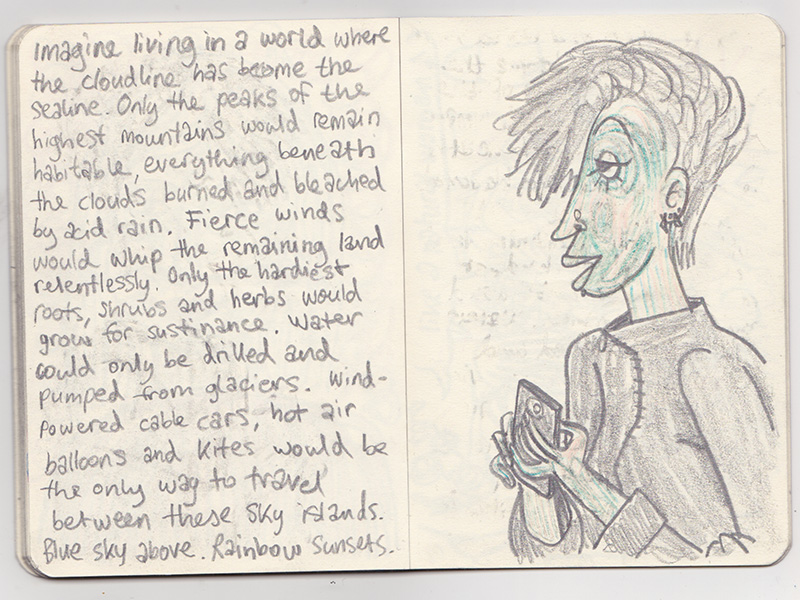 Imagine living in a world where
the cloudline has become the
sealine. Only the peaks of the
highest mountains would remain
habitable, everything beneath
the clouds burned and bleached
by acid rain. Fierce winds
would whip the remaining land
relentlessly. Only the hardiest
roots, shrubs and herbs would
grow for sustinance. Water
could only be drilled and
pumped from glaciers. Wind-
powered cable cars, hot air
balloons and kites would be
the only way to travel
between these sky islands.
Blue sky above. Rainbow sunsets.